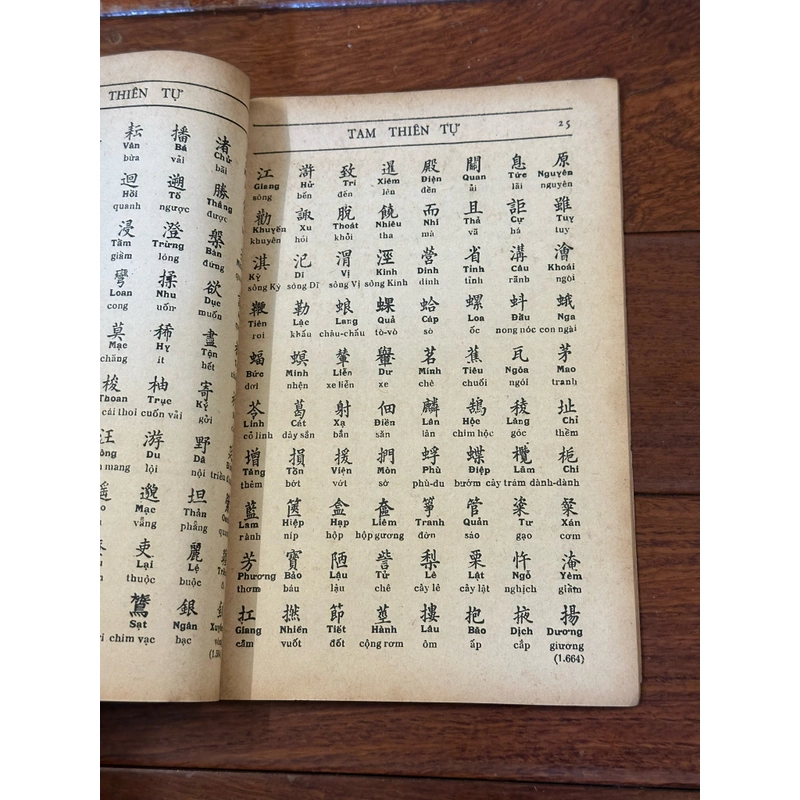 THIÊN TỰ
耘 播 渚
Vân Bá Chử
bừa vãi bãi
迴 遡 勝
Hồi Tố Thắng
quanh ngược được
浸 澄 槃
Tầm Trừng Bàn
giầm lóng đứng
彎 揉 欲
Loan Nhu Dục
cong uốn muốn
莫 稀 盡
Mạc Hy Tận
chăng ít hết
梭 柚 寄
Thoan Trục Ký
cái thoi cuốn vải gởi
汪 游 野
Du Dã
mang lội nội
遙 邈 坦
Mạc Thản
vẳng phẳng
吏 麗
Lại Lệ
thuộc buộc
鷟 銀
Sạt Ngân
chim vạc bạc
TAM THIÊN TỰ 25
江 滸 致 暹 殿 關 息 原
Giang Hử Trí Xiêm Điện Quan Tức Nguyên
sông bến đến lên đền ải lãi nguyên
勸 諏 脫 饒 而 且 詎 雖
Khuyến Xu Thoát Nhiêu Nhi Thả Cự Tuy
khuyên hỏi khỏi tha mà vã há tuy
淇 汜 渭 涇 營 省 溝 澮
Kỳ Dĩ Vị Kinh Dinh Tỉnh Câu Khoái
sông Kỳ sông Dĩ sông Vị sông Kinh dinh tỉnh rãnh ngòi
鞭 勒 蜋 蜾 蛤 螺 蚪 蛾
Tiên Lặc Lang Quả Cáp Loa Đẩu Nga
roi khấu châu-chấu tò-vò sò ốc nòng nóc con ngài
蝠 螟 輦 轝 茗 蕉 瓦 茅
Bức Minh Liễn Dư Mính Tiêu Ngõa Mao
dơi nhện xe liễn xe chè chuối ngói tranh
苓 葛 射 佃 麟 鵠 稜 址
Linh Cát Xạ Điền Lân Hộc Lăng Chỉ
cỏ linh dây sắn bắn săn lân chim hộc góc thềm
增 損 援 捫 蜉 蝶 欖 梔
Tăng Tổn Viện Môn Phù Điệp Lãm Chi
thêm bớt vớt sờ phù-du bướm cây trám dành-dành
藍 篋 盒 奩 箏 管 粢 粲
Lam Hiệp Hạp Liêm Tranh Quản Tư Xán
rành níp hộp hộp gương đờn sáo gạo cơm
芳 寶 陋 訾 梨 栗 忤 淹
Phương Bảo Lậu Tử Lê Lật Ngỗ Yêm
thơm báu lậu chê cây lê cây lật nghịch giầm
扛 撚 節 莖 摟 抱 掖 揚
Giang Nhiên Tiết Hành Lâu Bão Dịch Dương
cầm vuốt đốt cộng rơm ôm ấp cắp giương
(1.664)